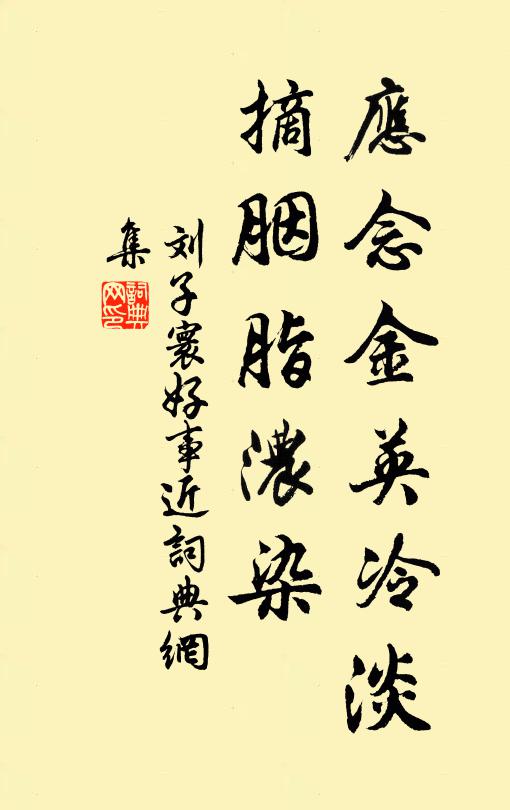 應念金英冷淡
摘胭脂濃染
刘子寰好事近詞典網
集
詞典網印